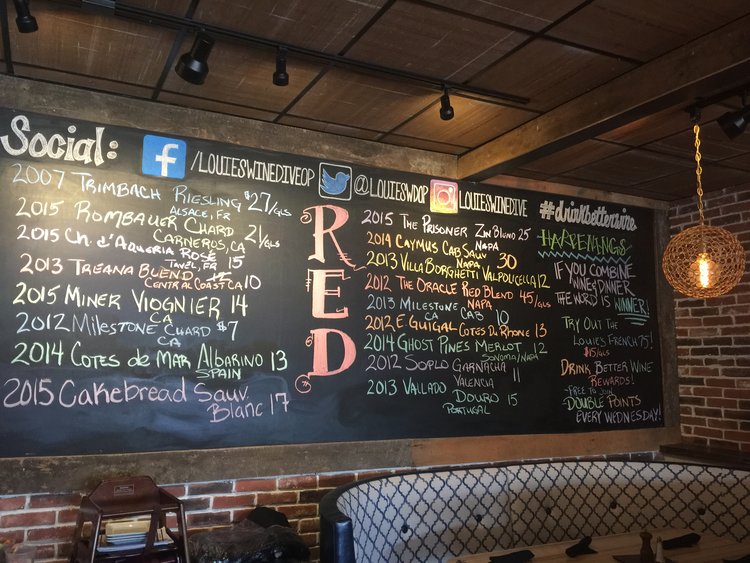 Social:
f /LOUIESWINEDIVEOP @LOUIESWDOP LOUIESWINEDIVE
2007 TRIMBACH RIESLING $27/GLS
ALSACE, FR
2015 ROMBAUER CHARD 21/GLS
CARNEROS, CA
2015 Ch. d'AQUERIA ROSÉ 15
TAVEL, FR
2013 TREANA BLEND 10
CENTRAL COAST CA
2015 MINER VIOGNIER 14
CA
2012 MILESTONE CHARD $7
CA
2014 COTES de MAR ALBARINO 13
SPAIN
2015 CAKEBREAD SAUV. BLANC 17
RED
2015 THE PRISONER ZIN BLEND 25
NAPA
2014 CAYMUS CAB SAUV 30
NAPA
2013 VILLA BORGHETTI VALPOLICELLA 12
2012 THE ORACLE RED BLEND 45/GLS
NAPA
2013 MILESTONE CAB 10
CA
2012 E GUIGAL COTES DU RHONE 13
2014 GHOST PINES MERLOT 12
SONOMA/NAPA
2012 SOPLO GARNACHA 11
VALENCIA
2013 VALLADO DOURO 15
PORTUGAL
#drinkbetterwine
HAPPENINGS
IF YOU COMBINE
WINE & DINNER
THE WORD IS WINNER!
TRY OUT THE
LOUIE'S FRENCH 75!
$15/GLS
DRINK BETTER WINE
REWARDS!
-FREE TO JOIN-
DOUBLE POINTS
EVERY WEDNESDAY!